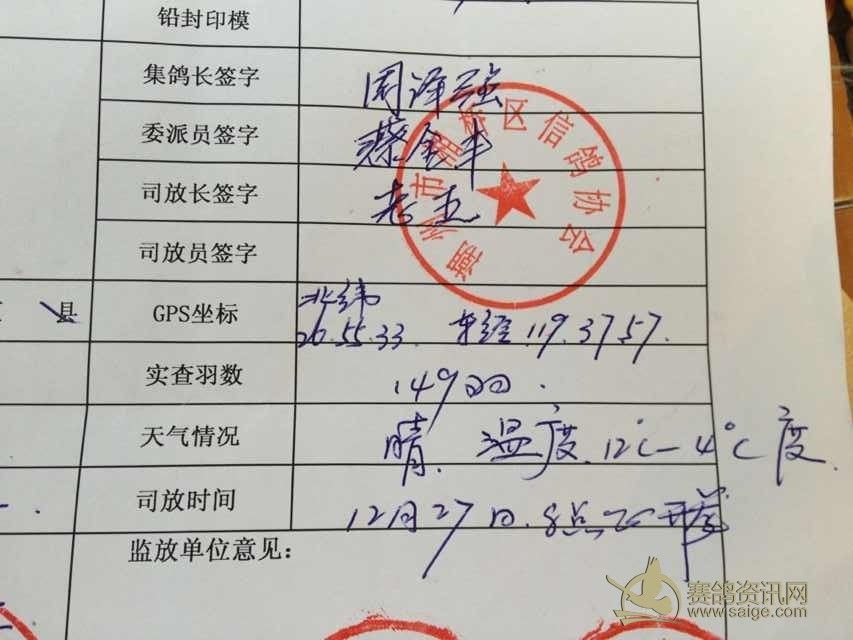 铅封印模
集鸽长签字 周泽强
委派员签字 蔡金丰
司放长签字
司放员签字
县 GPS坐标 北纬
26.55.33. 东经119.3757.
实查羽数 149羽.
天气情况 晴. 温度.12℃-4℃度.
司放时间 12月27日.8点
监放单位意见：
潮州市湘桥区信鸽协会
赛鸽资讯网
www.saige.com